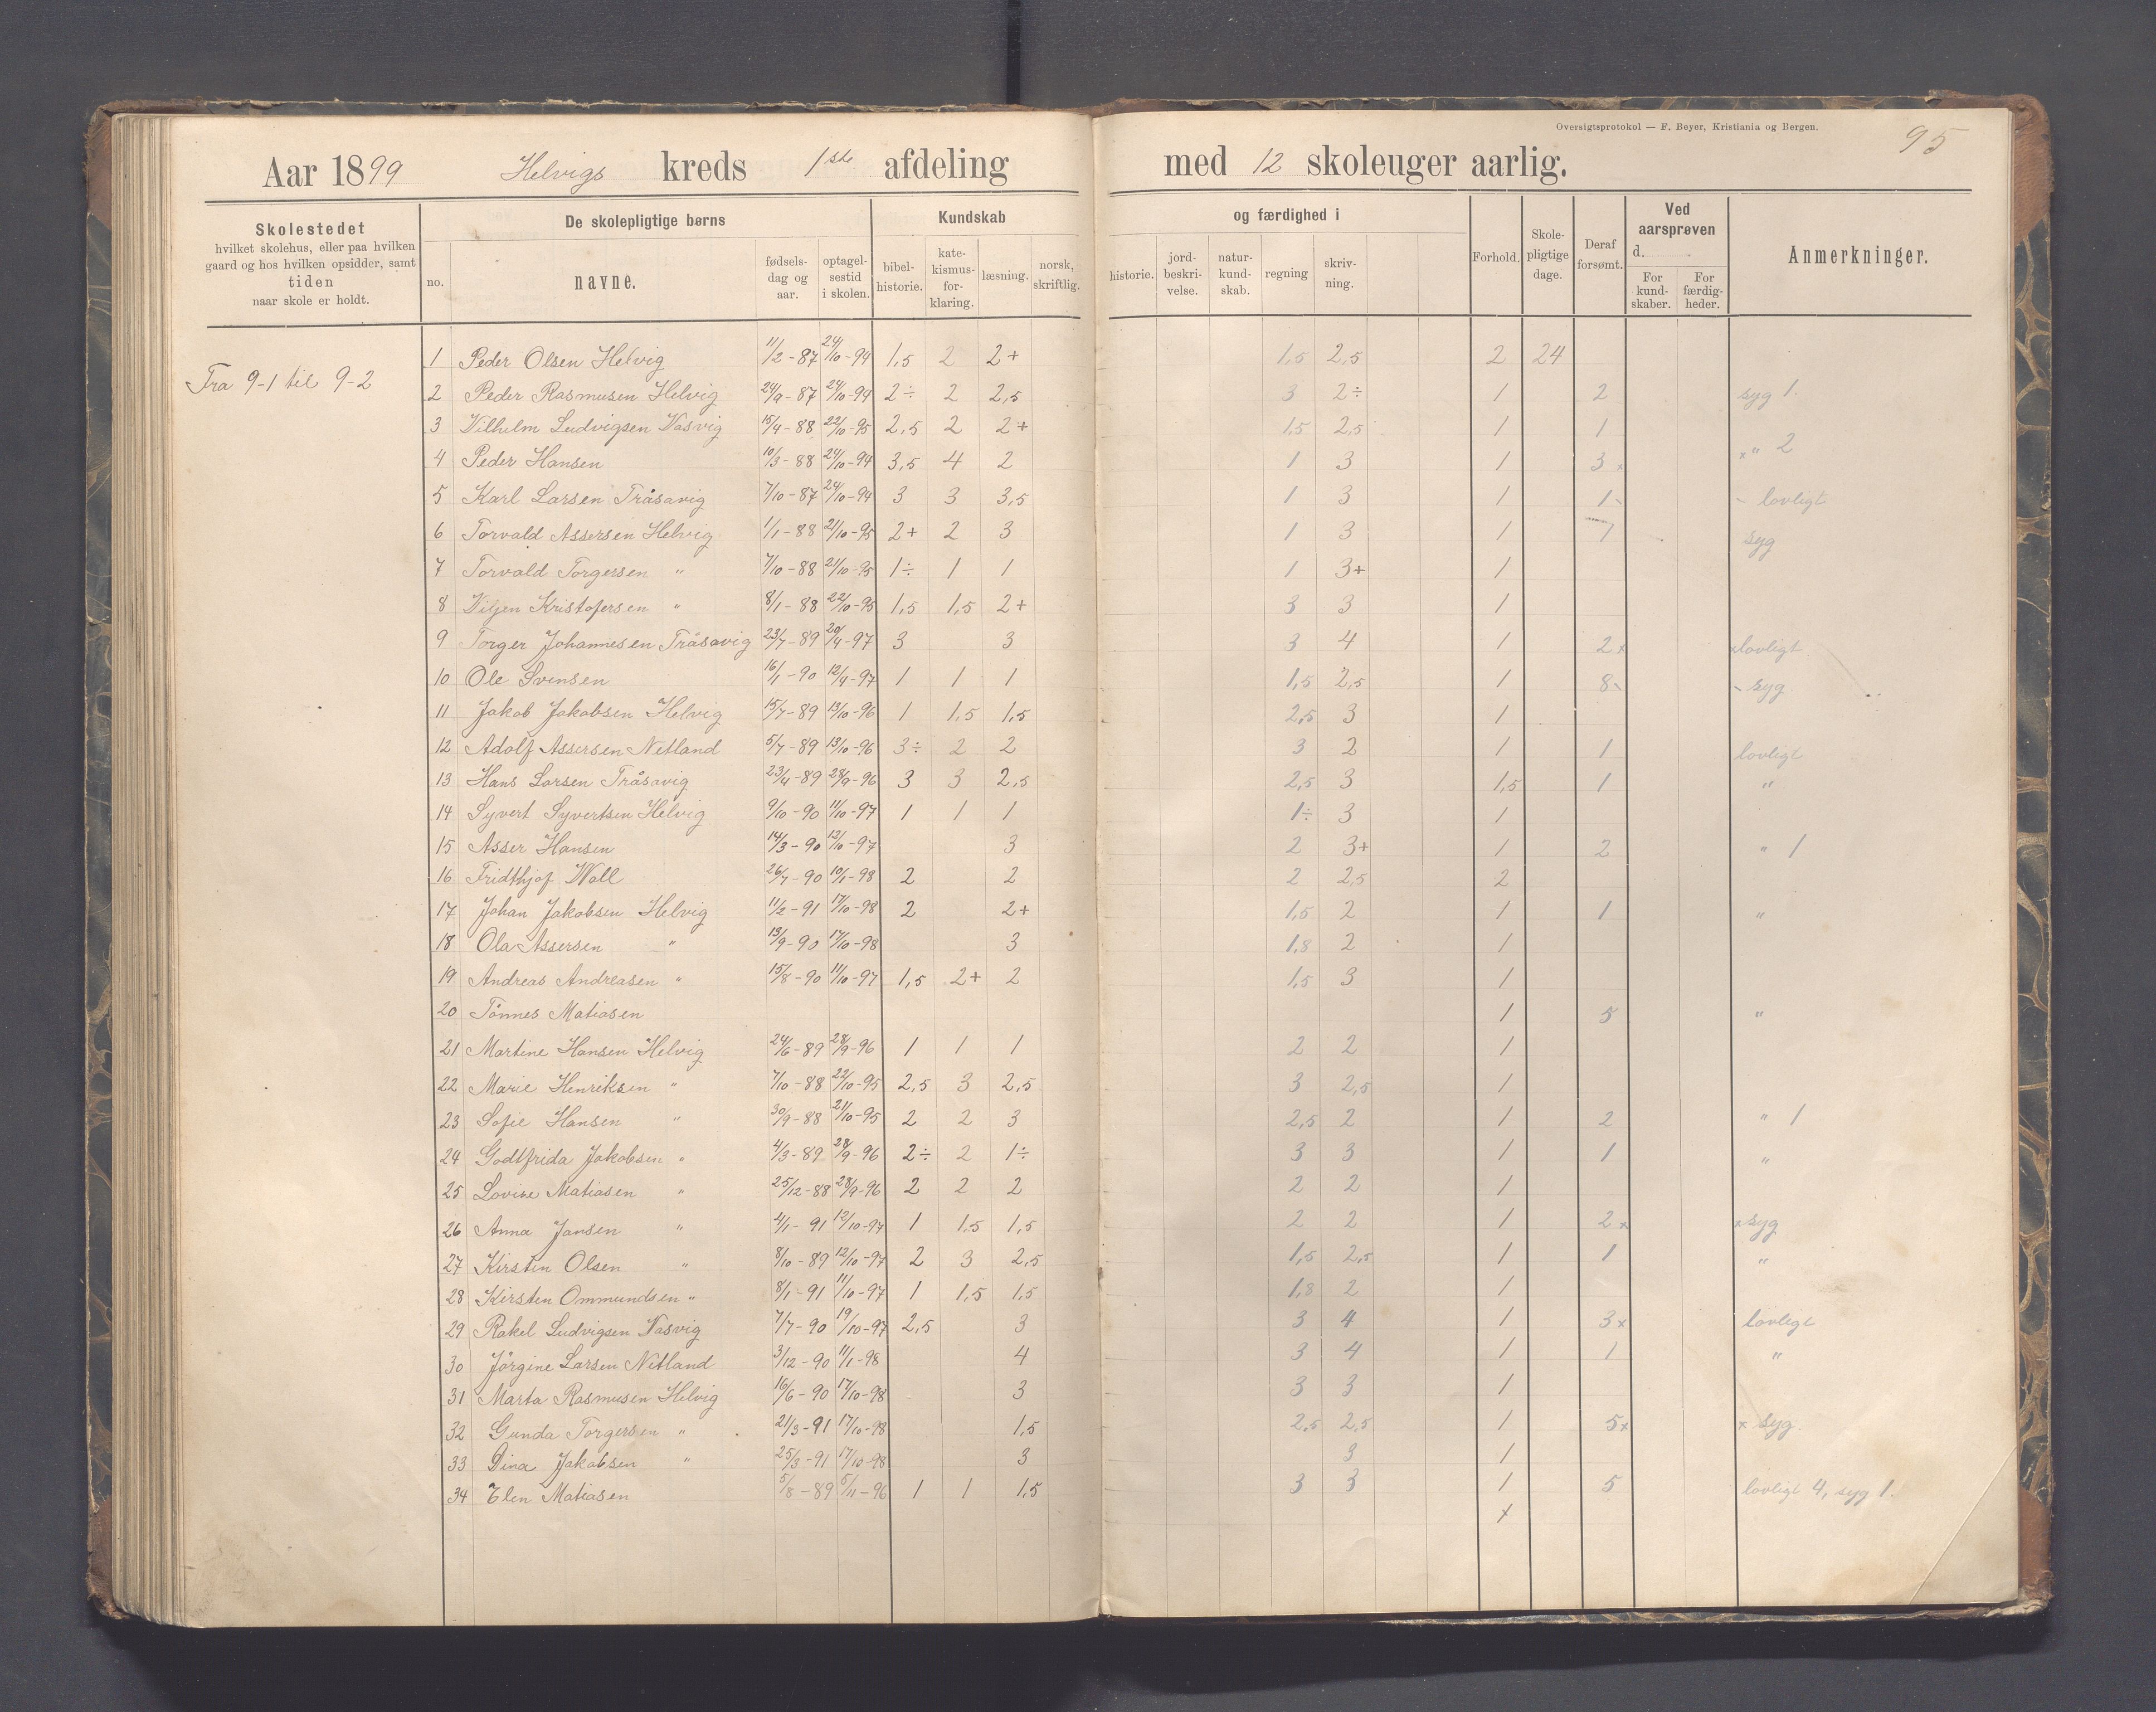 Oversigtsprotokol — F. Beyer, Kristiania og Bergen.
95
Aar 1899 Helvigs kreds 1ste afdeling med 12 skoleuger aarlig.
Skolestedet
hvilket skolehus, eller paa hvilken
gaard og hos hvilken opsidder, samt
tiden
naar skole er holdt.
De skolepligtige børns
no.
navne.
fødsels-
dag og
aar.
optagel-
sestid
i skolen.
Kundskab
bibel-
historie.
kate-
kismus-
for-
klaring.
læsning.
norsk,
skriftlig.
og færdighed i
historie.
jord-
beskri-
velse.
natur-
kund-
skab.
regning
skriv-
ning.
Forhold.
Skole-
pligtige
dage.
Deraf
forsømt.
Ved
aarsprøven
d.
For
kund-
skaber.
For
færdig-
heder.
Anmerkninger.
Fra 9-1 til 9-2
1 Peder Olsen Helvig 11/2-87 24/10-94 1,5 2 2+ 1,5 2,5 2 24
2 Peder Rasmusen Helvig 24/9-87 24/10-94 2÷ 2 2,5 3 2÷ 1 2 syg 1.
3 Vilhelm Ludvigsen Vasvig 15/4-88 22/10-95 2,5 2 2+ 1,5 2,5 1 1
4 Peder Hansen 10/3-88 24/10-94 3,5 4 2 1 3 1 3x x " 2
5 Karl Larsen Tråsavig 7/10-87 24/10-94 3 3 3,5 1 3 1 1- - lovligt
6 Torvald Assersen Helvig 1/1-88 21/10-95 2+ 2 3 1 3 1 1 syg
7 Torvald Torgersen " 7/10-88 21/10-95 1÷ 1 1 1 3+ 1
8 Viljen Kristofersen " 8/1-88 22/10-95 1,5 1,5 2+ 3 3 1
9 Torger Johannesen Tråsavig 23/7-89 20/4-97 3 3 3 4 1 2x xlovligt.
10 Ole Svensen 16/1-90 12/4-97 1 1 1 1,5 2,5 1 8- - syg
11 Jakob Jakobsen Helvig 15/7-89 13/10-96 1 1,5 1,5 2,5 3 1
12 Adolf Assersen Netland 5/7-89 13/10-96 3÷ 2 2 3 2 1 1 lovligt
13 Hans Larsen Tråsavig 23/4-89 28/9-96 3 3 2,5 2,5 3 1,5 1 "
14 Syvert Syvertsen Helvig 9/10-90 11/10-97 1 1 1 1÷ 3 1
15 Asser Hansen 14/3-90 12/10-97 3 2 3+ 1 2 " 1
16 Fridthjof Wall 26/7-90 10/1-98 2 2 2 2,5 2
17 Johan Jakobsen Helvig 11/2-91 17/10-98 2 2+ 1,5 2 1 1 "
18 Ola Assersen " 13/9-90 17/10-98 3 1,8 2 1
19 Andreas Andreasen " 15/8-90 11/10-97 1,5 2+ 2 1,5 3 1
20 Tönnes Matiasen 1 5 "
21 Martine Hansen Helvig 24/6-89 28/9-96 1 1 1 2 2 1
22 Marie Henriksen " 7/10-88 22/10-95 2,5 3 2,5 3 2,5 1
23 Sofie Hansen " 30/9-88 21/10-95 2 2 3 2,5 2 1 2 " 1
24 Godtfrida Jakobsen " 4/3-89 28/9-96 2÷ 2 1÷ 3 3 1 1 "
25 Lovise Matiasen " 25/12-88 28/9-96 2 2 2 2 2 1
26 Anna Jansen " 4/1-91 12/10-97 1 1,5 1,5 2 2 1 2x xsyg
27 Kirsten Olsen " 8/10-89 12/10-97 2 3 2,5 1,5 2,5 1 1 "
28 Kirsten Ommundsen " 8/1-91 11/10-97 1 1,5 1,5 1,8 2 1
29 Rakel Ludvigsen Vasvig 7/7-90 19/10-97 2,5 3 3 4 1 3x lovligt
30 Jörgine Larsen Netland 3/12-90 11/1-98 4 3 4 1 1 "
31 Marta Rasmusen Helvig 16/6-90 17/10-98 3 3 3 1
32 Gunda Torgersen " 21/3-91 17/10-98 1,5 2,5 2,5 1 5x x syg.
33 Dina Jakobsen " 25/3-91 17/10-98 3 3 1
34 Elen Matiasen 5/8-89 5/11-96 1 1 1,5 3 3 1 5 lovligt 4, syg 1.
x